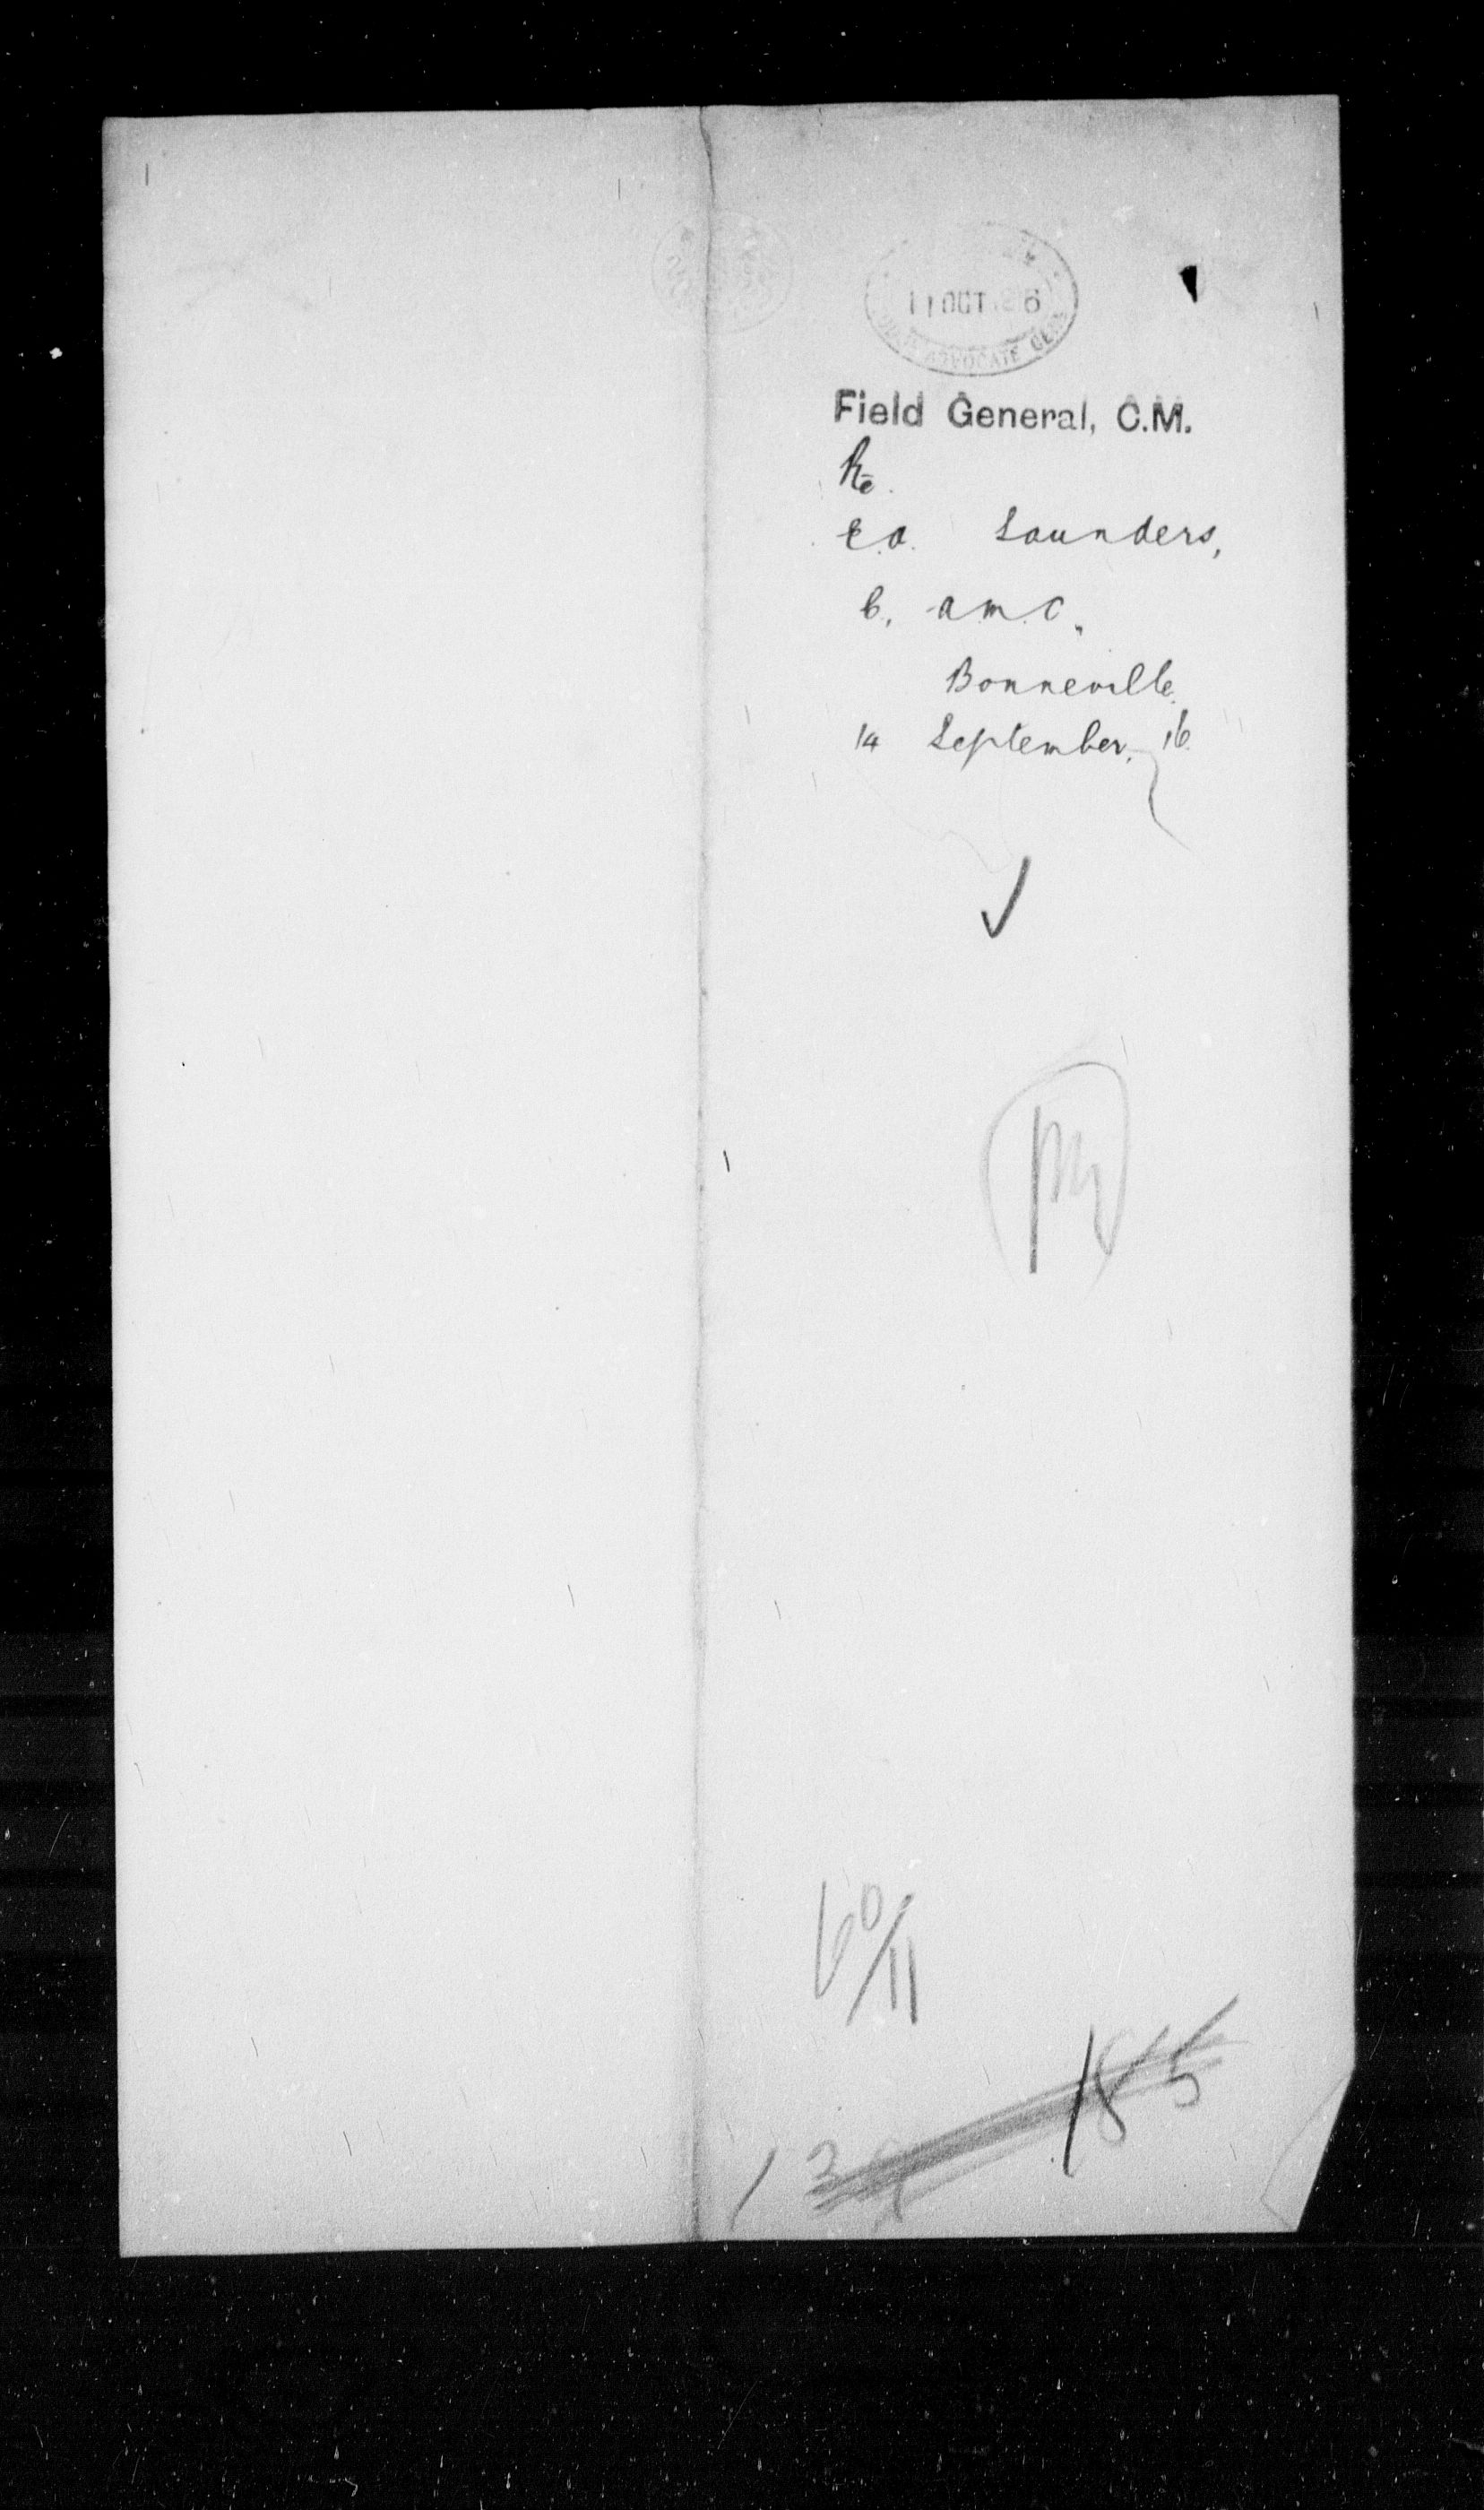 11 OCT 1916
ADVOCATE GEN
Field General, C.M.
Re
E.A. Saunders,
C. A.M.C.
Bonneville.
14 September, 16.
60/11
185